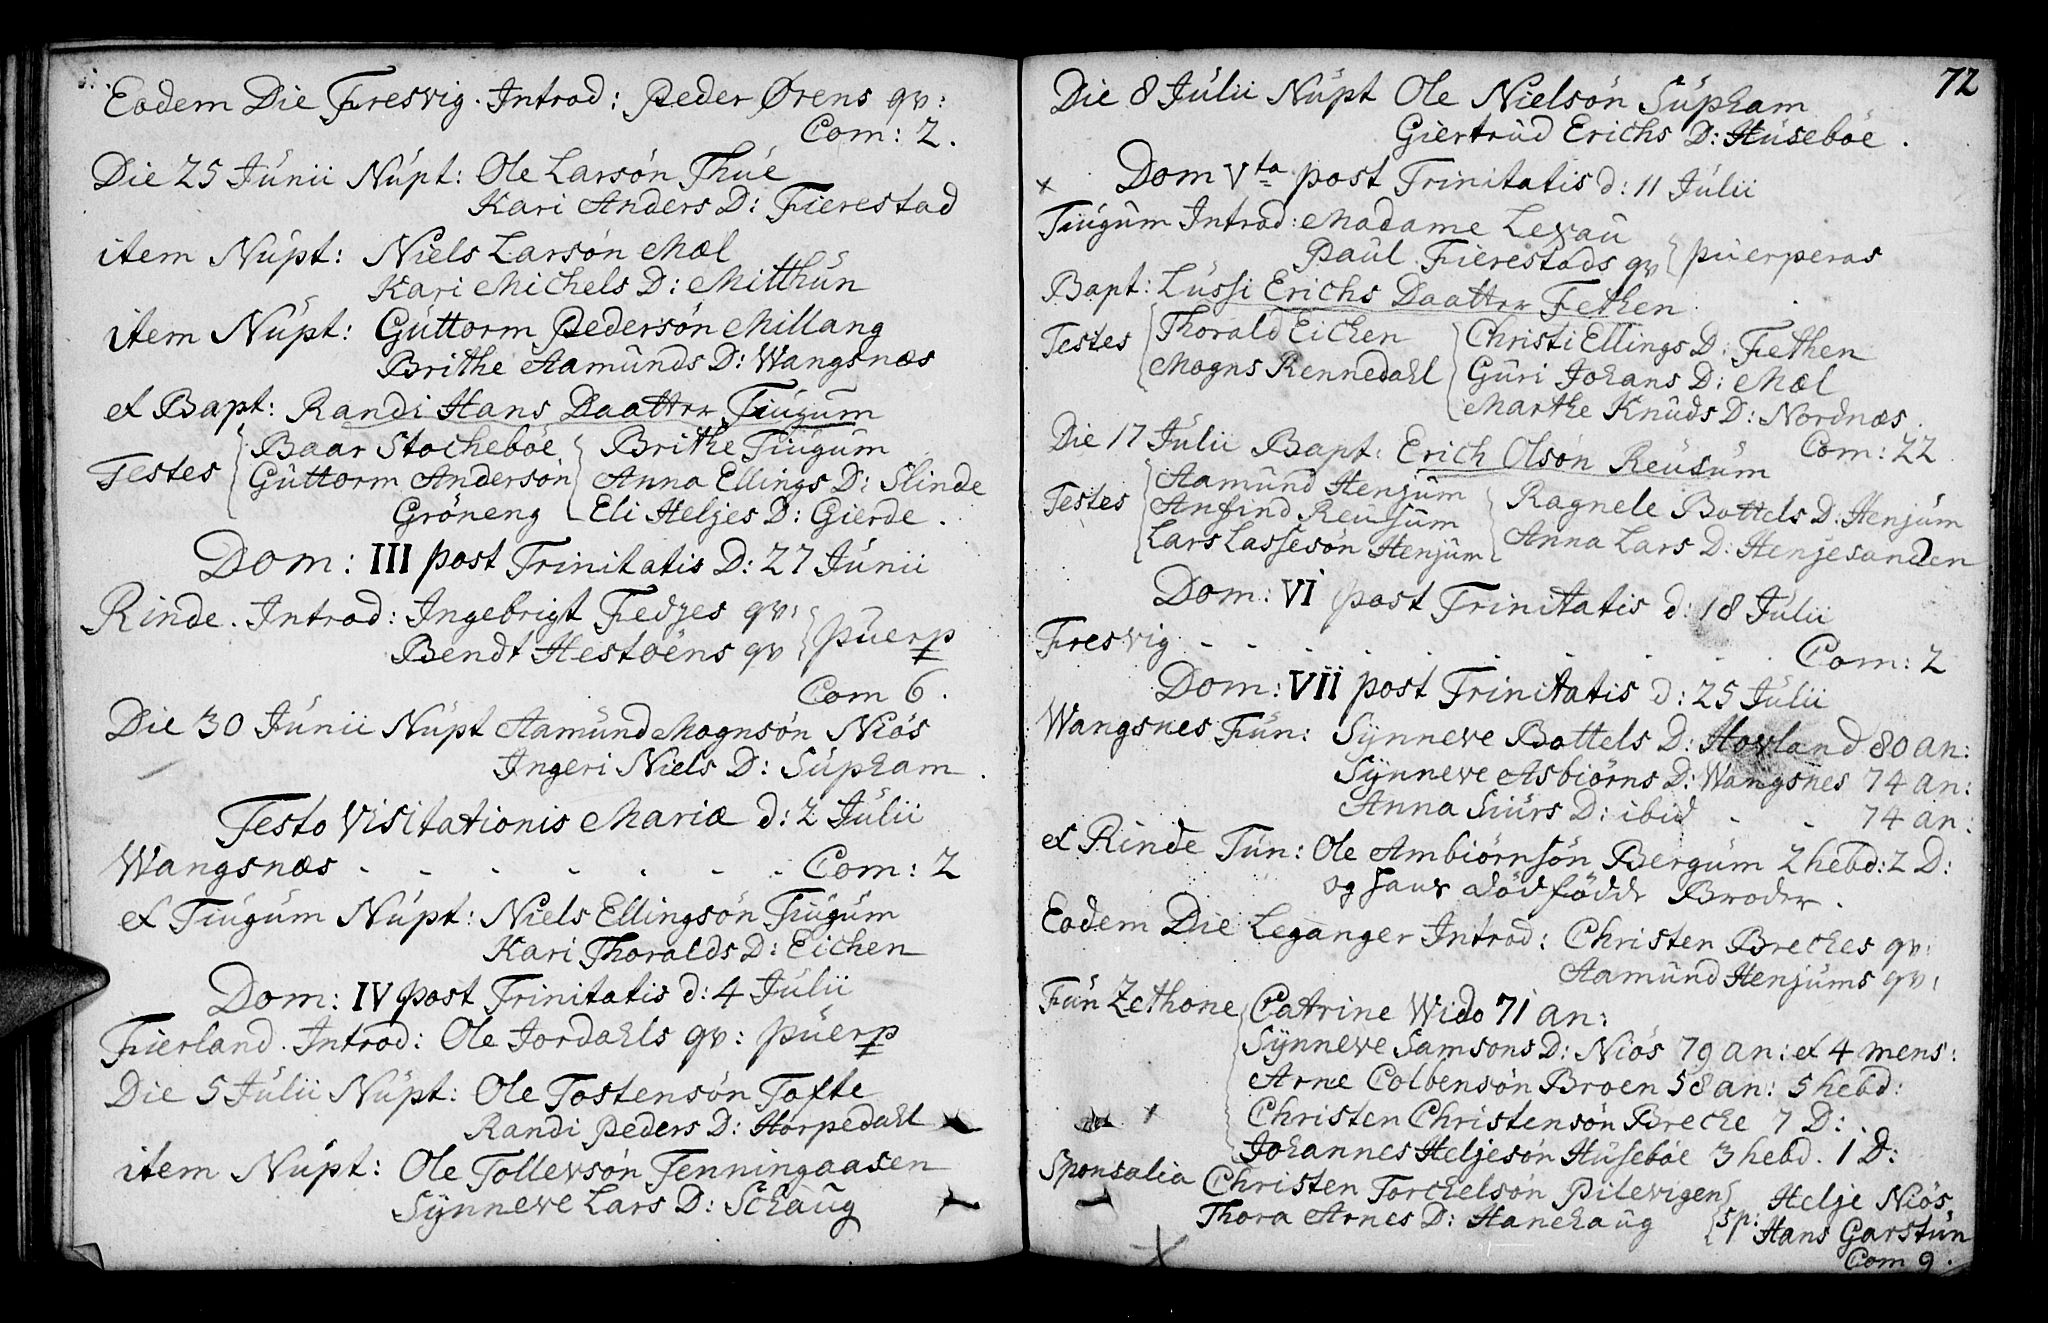 Eodem Die Fresvig. Introd: Peder Ørens qv:
Com: 2.
Die 25 Junii Nupt: Ole Larsön Thue
Kari Anders D: Fierestad
item Nupt: Niels Larsön Mæl
Kari Michels D: Mitthun
item Nupt: Guttorm Pedersön Millang
Brithe Aamunds D: Wangsnæs
et Bapt: Randi Hans Daatter Fiugum
Testes
Baar Stocheböe
Guttorm Anderson
Gröneng
Brithe Fiugum
Anna Ellings D: Slinde
Eli Heljes D: Gierde.
Dom: III post Trinitatis D: 27 Junii
Rinde. Introd: Ingebrigt Fedjes qv:
Bendt Hestöens qv
puerp
Com 6.
Die 30 Junii Nupt Aamund Mognsön Niös
Ingeri Niels D: Supham.
Festo Visitationis Mariæ d: 2 Julii
Wangsnæs - - - - - - Com: 2
et Fiugum Nupt: Niels Ellingsön Fiugum
Kari Thoralds D: Eichen
Dom: IV post Trinitatis d: 4 Julii
Fierland. Introd: Ole Jordahls qv: puerp
Die 5 Julii Nupt: Ole Tostensön Tofte
Randi Peders D: Horpedahl
item Nupt: Ole Tollevsön Fenningaasen
Synneve Lars D: Schaug
72
Die 8 Julii Nupt Ole Nielsön Supham
Giertrud Erichs D: Huseböe.
Dom Vta post Trinitatis d: 11 Julii
Fiugum Introd: Madame Lexau
Paul Fierestads qv
puerperas
Bapt: Lussi Erichs Daatter Fethen.
Testes
Thorald Eichen
Mogns Rennedahl
Christi Ellings D: Fethen
Guri Johans D: Mæl
Marthe Knuds D: Nordnæs.
Com: 22.
Die 17 Julii Bapt: Erich Olsön Reusum
Testes
Aamund Henjum
Anfind Reusum
Lars Lassesön Henjum
Ragnele Bottels D: Henjum
Anna Lars D: Henjesanden
Dom: VI post Trinitatis d: 18 Julii
Fresvig - - - - - - - - Com: 2
Dom: VII post Trinitatis d: 25 Julii
Wangsnes Fun: Synneve Bottels D: Hovland 80 an:
Synneve Asbiörns D: Wangsnes 74 an:
Anna Siurs D: ibid - - 74 an:
et Rinde Fun: Ole Ambiörnsön Bergum 2 hebd: 2 D:
og hans dödfödde Broder.
Eodem Die Leganger Introd: Christen Breches qv:
Aamund Henjums qv:
Fun Zethone
Catrine Wido 71 an:
Synneve Samsons D: Niös 79 an: et 4 mens:
Arne Colbensön Broen 58 an: 5 hebd:
Christen Christensön Breche 7 D:
Johannes Heljesön Huseböe 3 hebd. 1 D:
Sponsalia Christen Torchelsön Pilevigen
Thora Arnes D: Hanehaug
sp: Helje Niös,
Hans Garstun
Com 9.